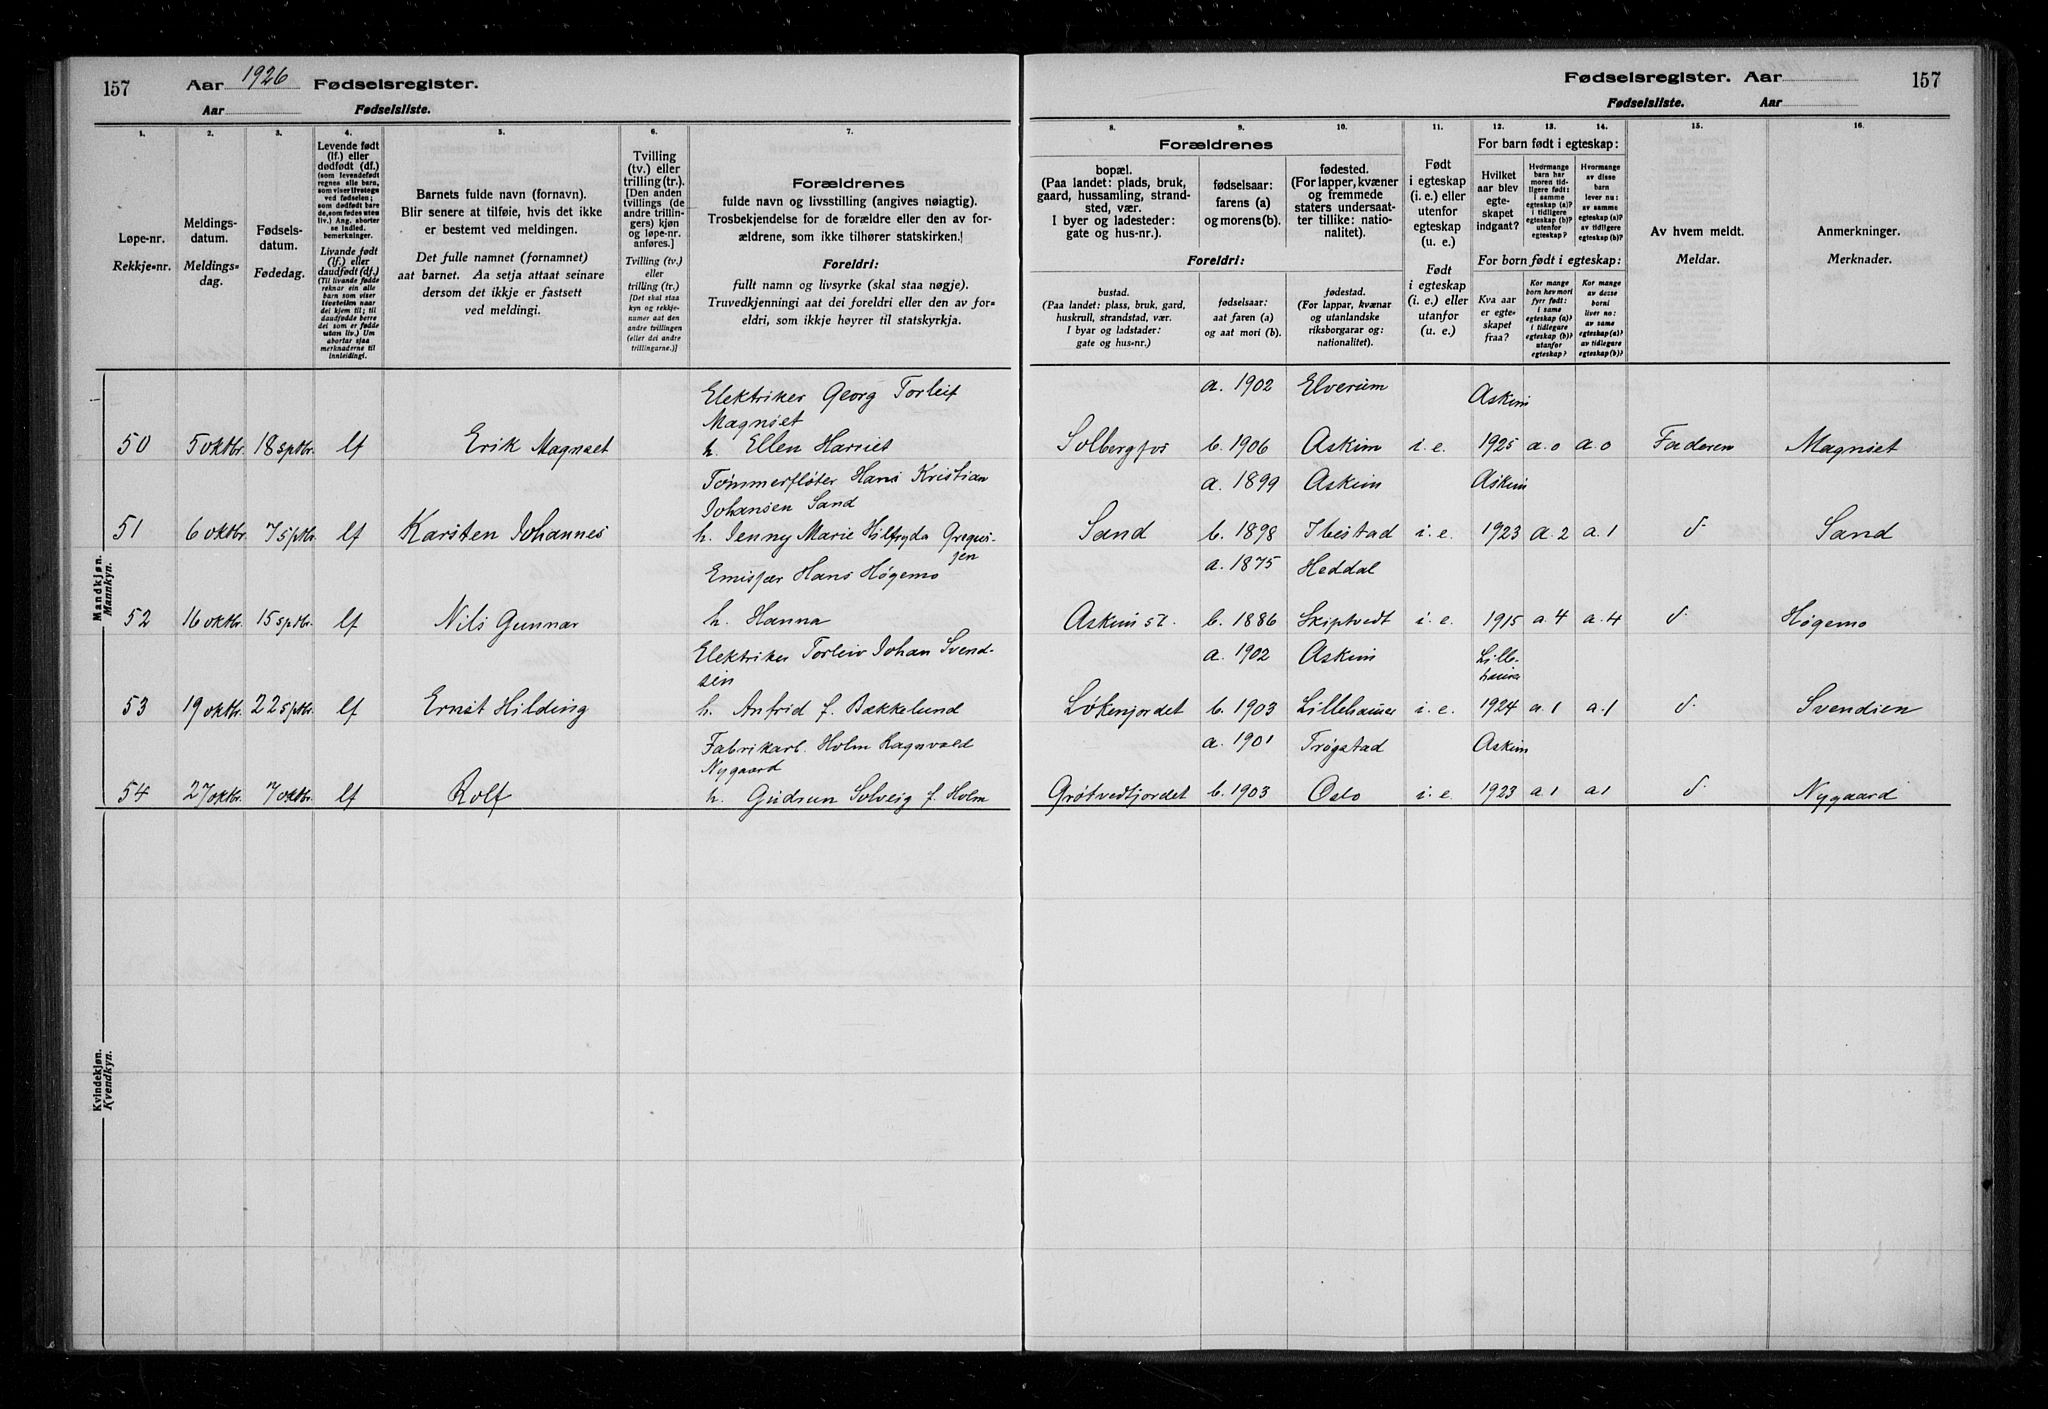 157 Aar 1926 Fødselsregister.
Aar Fødselsliste.
Fødselsregister. Aar 157
Fødselsliste. Aar
1. 2. 3. 4. 5. 6. 7. 8. 9. 10. 11. 12. 13. 14. 15. 16.
Løpe-nr.
Rekkje-nr.
Meldings-
datum.
Meldings-
dag.
Fødsels-
datum.
Fødedag.
Levende født
(lf.) eller
dødfødt (df.)
(som levendefødt
regnes alle barn,
som viser livstegn
ved fødselen;
som dødfødt bar-
de, som fødes uten
liv.) Ang. aborter
se indled.
bemerkninger.
Livande født
(lf.) eller
daudfødt (df.)
(Til livande fødde
reknar ein alle
barn som viser
livsteikn naar
dei kjem til; til
daudfødde berre
dei som er fødde
utan liv.) Um
abortar sjaa
merknaderne til
innleidingi.
Barnets fulde navn (fornavn).
Blir senere at tilføie, hvis det ikke
er bestemt ved meldingen.
Det fulle namnet (fornamnet)
aat barnet. Aa setja attaat seinare
dersom det ikkje er fastsett
ved meldingi.
Tvilling
(tv.) eller
trilling (tr.).
[Den anden
tvillings (de
andre trillin-
gers) kjøn
og løpe-nr.
anføres.]
Tvilling (tv.)
eller
trilling (tr.)
[Det skal staa
kyn og rekkje-
numer aat den
andre tvillingen
(eller dei andre
trillingarne.)]
Forældrenes
fulde navn og livsstilling (angives nøiagtig).
Trosbekjendelse for de forældre eller den av for-
ældrene, som ikke tilhører statskirken.
Foreldri:
fullt namn og livsyrke (skal staa nøgje).
Truvedkjenningi aat dei foreldri eller den av for-
eldri, som ikkje høyrer til statskyrkja.
Forældrenes
bopæl.
(Paa landet: plads, bruk,
gaard, hussamling, strand-
sted, vær.
I byer og ladesteder:
gate og hus-nr.).
fødselsaar:
farens (a)
og morens (b).
fødested.
(For lapper, kvæner
og fremmede
staters undersaat-
ter tillike: natio-
nalitet).
Foreldri:
bustad.
(Paa landet: plass, bruk, gard,
huskrull, strandstad, vær.
I byar og ladstader:
gate og hus-nr.)
fødselsaar:
aat faren (a)
og aat mori (b).
fødestad.
(For lappar, kvænar
og utanlandske
riksborgarar og:
nationalitet).
Født
i egteskap
(i. e.) eller
utenfor
egteskap
(u. e.)
Født
i egteskap
(i. e.) eller
utanfor
(u. e.)
For barn født i egteskap:
Hvilket
aar blev
egte-
skapet
indgaat?
Hvormange
barn har
moren tid-
ligere født:
i samme
egteskap (a)?
i tidligere
egteskap (b)?
utenfor
egteskap?
Hvormange
av disse
barn
lever nu:
av samme
egteskap (a)?
av tidligere
egteskap (b)?
For born født i egteskap:
Kva aar
er egte-
skapet
fraa?
Kor mange
born hev mori
fyrr født:
i same
egteskap (a)?
i tidlegare
egteskap (b)?
utanfor
egteskap?
Kor mange
av desse
borni
liver no:
av same
egteskap (a)?
av tidlegare
egteskap (b)?
Av hvem meldt.
Meldar.
Anmerkninger.
Merknader.
Mandkjøn.
Mannkyn.
Elektriker Georg Torleif a. 1902 Elverum Askim
Magnset
50 5 oktbr. 18 sptbr. lf Erik Magnset h. Ellen Harriet Solbergfos b. 1906 Askim i. e. 1925 a. 0 a. 0 Faderen Magnset
Tømmerfløter Hans Kristian a. 1899 Askim Askim
Johansen Sand
51 6 oktbr. 7 sptbr. lf Karsten Johannes h. Jenny Marie Hilfryda Gregus- Sand b. 1898 Ibestad i. e. 1923 a. 2 a. 1 d. Sand
sen
Hans Høgemo a. 1875 Heddal
52 16 oktbr. 15 sptbr. lf Nils Gunnar h. Hanna Askim st. b. 1886 Skiptvedt i. e. 1915 a. 4 a. 4 d. Høgemo
Elektriker Torleiv Johan Svend- a. 1902 Askim Lille-
sen hamer
53 19 oktbr. 22 sptbr. lf Ernst Hilding h. Anfrid f. Bækkelund Løkenjordet b. 1903 Lillehamer i. e. 1924 a. 1 a. 1 d. Svendsen
Fabrikarb. Holm Ragnvald a. 1901 Trøgstad Askim
Nygaard
54 27 oktbr. 7 oktbr. lf Rolf h. Gudrun Solveig f. Holm Grøtvedtjordet b. 1903 Oslo i. e. 1923 a. 1 a. 1 d. Nygaard
Kvindekjøn.
Kvendkyn.